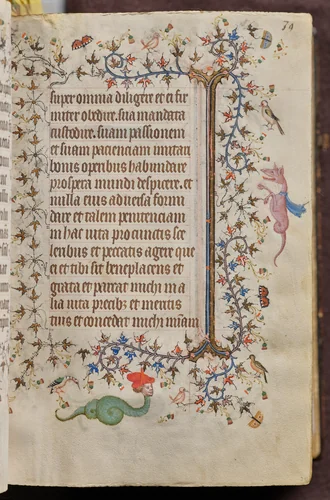 74
super omnia diligere et ei fir
miter obedire. sua mandata
custodire. suam passionem
et suam pacienciam imitari
bonis operibus habundare
prospera mundi despicere. et
nulla eius aduersa formi
dare et talem penitenciam
in hac uita pro cunctis sce
leribus et peccatis agere que
ei et tibi sit beneplacens et
grata et pareat michi in a
lia uita precibus et meritis
tuis et concedat michi